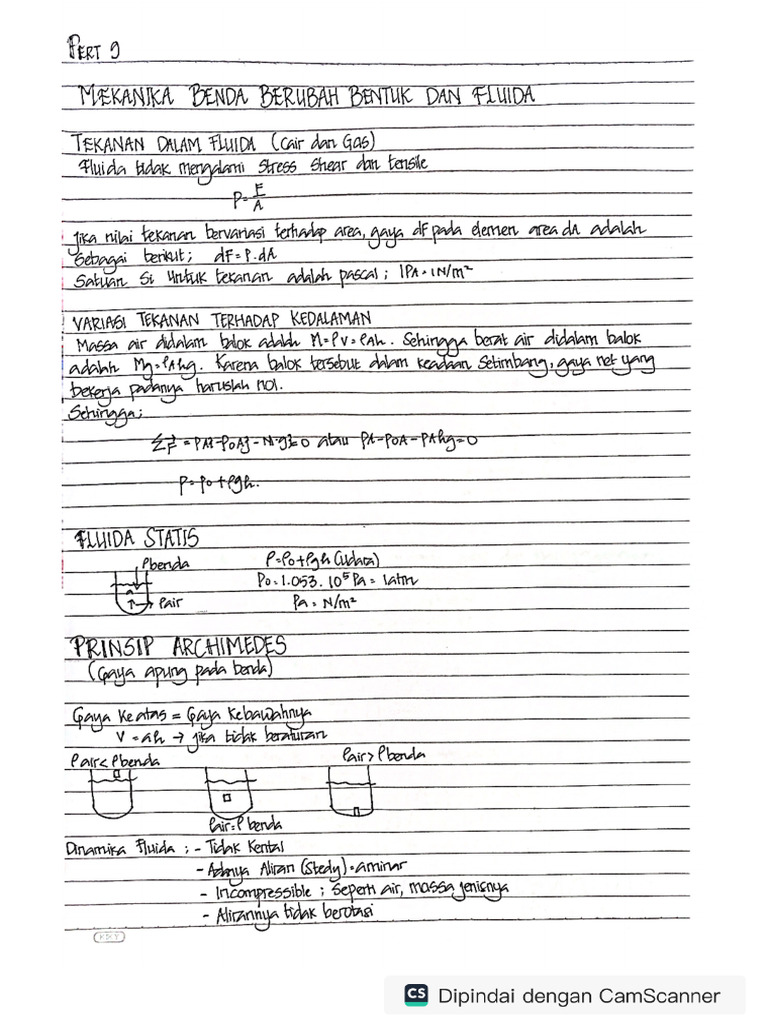 PERT 9
MEKANIKA BENDA BERUBAH BENTUK DAN FLUIDA
TEKANAN DALAM FLUIDA (Cair dan Gas)
Fluida tidak mengalami stress shear dan tensile
P = F/A
Jika nilai tekanan bervariasi terhadap area, gaya dF pada elemen area dA adalah
Sebagai berikut; dF = P.dA
Satuan SI untuk tekanan adalah pascal; 1PA = 1N/m²
VARIASI TEKANAN TERHADAP KEDALAMAN
Massa air didalam balok adalah M=ρV=ρAh. Sehingga berat air didalam balok
adalah Mg=ρAhg. Karena balok tersebut dalam keadaan setimbang, gaya net yang
bekerja padanya haruslah nol.
Sehingga;
atau PA-P0A-ρAhg=0
P=P0+ρgh.
FLUIDA STATIS
ρbenda P=P0+ρgh (Udara)
P0=1.053.10⁵ Pa = 1atm
ρair Pa = N/m²
PRINSIP ARCHIMEDES
(Gaya apung pada benda)
Gaya Keatas = Gaya Kebawahnya
V = ah → jika tidak beraturan
ρair<ρbenda ρair>ρbenda
ρair=ρbenda
Dinamika Fluida : - Tidak Kental
- Adanya Aliran (Stedy) =aminar
- Incompressible ; Seperti air, massa jenisnya
- Alirannya tidak berotasi
KIKY
CS Dipindai dengan CamScanner